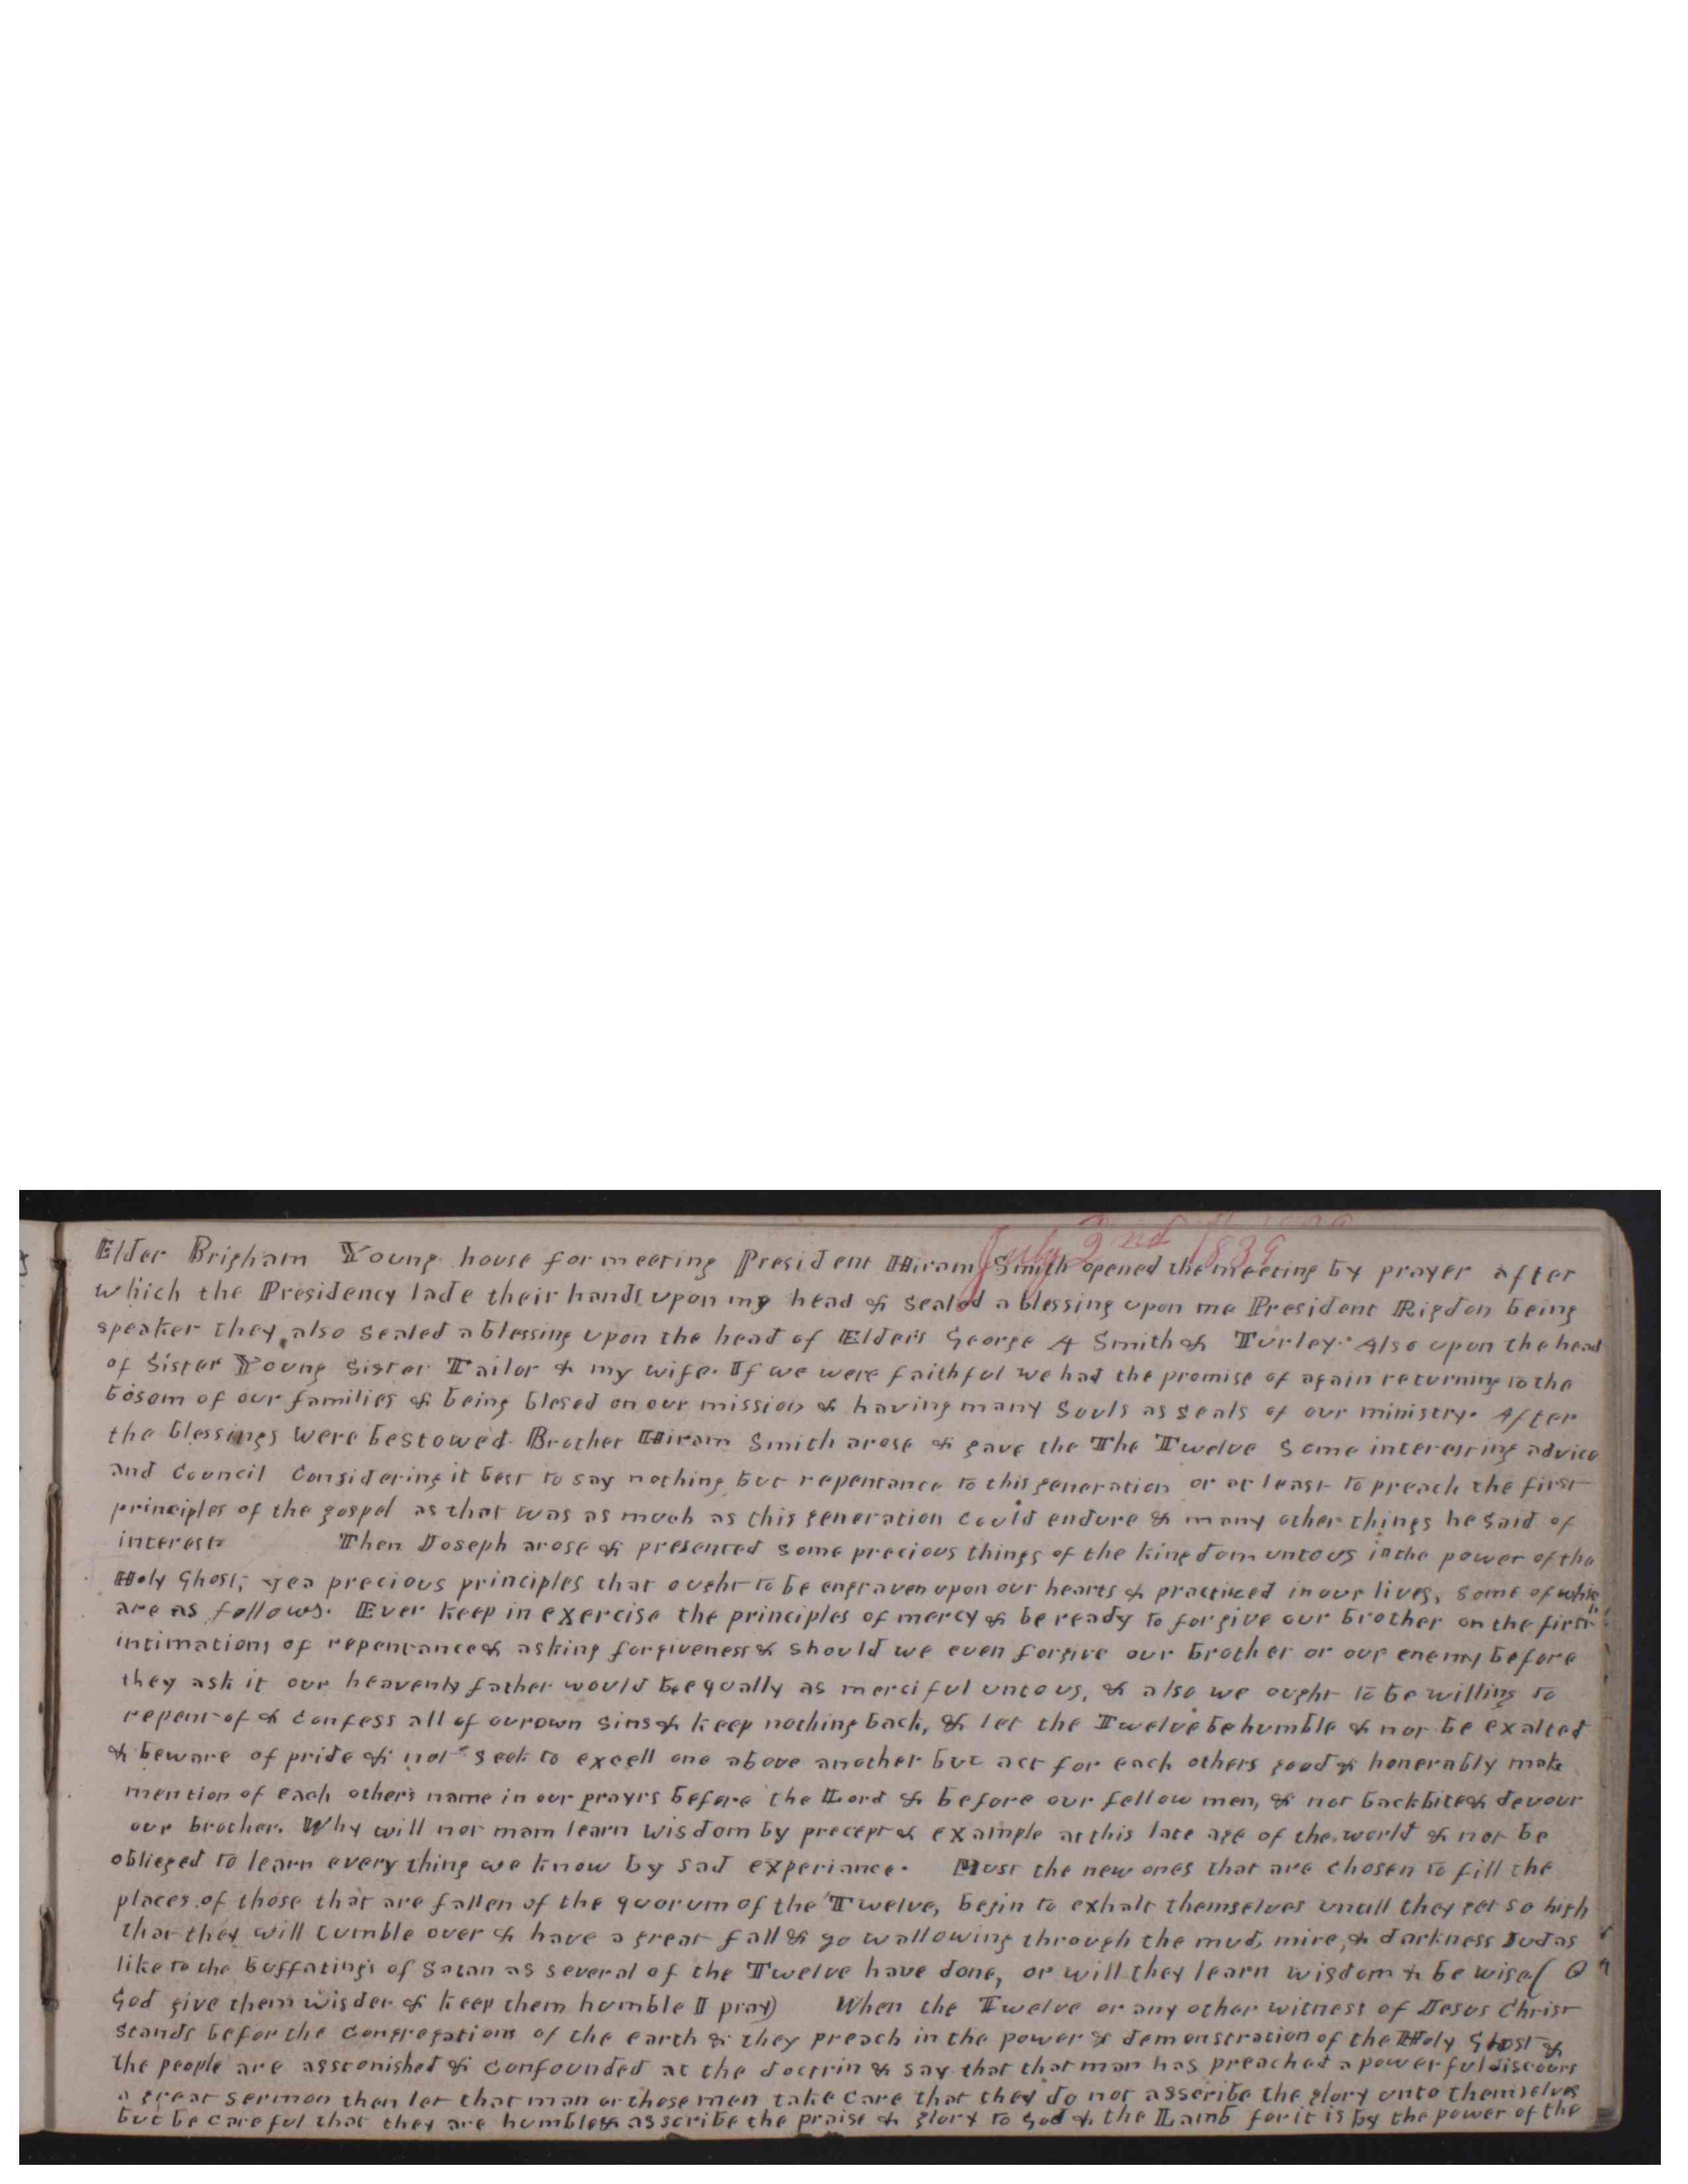 July 2nd 1839
Elder Brigham Young house for meeting President Hiram Smith opened the meeting by prayer after
which the Presidency lade their hands upon my head & sealed a blessing upon me President Rigdon being
speaker they also sealed a blessing upon the head of Elders George A Smith & Turley. Also upon the head
of Sister Young Sister Tailor & my wife. If we were faithful we had the promise of again returning to the
bosom of our families & being blesed on our mission & having many Souls as seals of our ministry. After
the blessings were bestowed Brother Hiram Smith arose & gave the The Twelve some interesting advice
and Council Considering it best to say nothing but repentance to this generation or at least to preach the first
principles of the gospel as that was as much as this generation could endure & many other things he said of
interest Then Joseph arose & presented some precious things of the kingdom unto us in the power of the
Holy Ghost; yea precious principles that ought to be engraven upon our hearts & practized in our lives, some of which
are as follows. Ever keep in exercise the principles of mercy & be ready to forgive our brother on the first
intimations of repentance & asking forgiveness & should we even forgive our brother or our enemy before
they ask it our heavenly father would be equally as merciful unto us, & also we ought to be willing to
repent of & confess all of our own sins & keep nothing back, & let the Twelve be humble & not be exalted
& beware of pride & not seek to excell one above another but act for each others good & honerably make
mention of each other's name in our prayrs before the Lord & before our fellow men, & not backbite & devour
our brother. Why will not mam learn wisdom by precept & example at this late age of the world & not be
oblieged to learn every thing we know by sad experiance. Must the new ones that are chosen to fill the
places of those that are fallen of the quorum of the Twelve, begin to exhalt themselves untill they get so high
that they will tumble over & have a great fall & go wallowing through the mud, mire, & darkness Judas
like to the buffatings of Satan as several of the Twelve have done, or will they learn wisdom & be wise (O
God give them wisder & keep them humble I pray) When the Twelve or any other witness of Jesus Christ
stands befor the Congregations of the earth & they preach in the power & demonstration of the Holy Ghost &
the people are asstonished & confounded at the doctrin & say that that man has preached a powerful discours
a great sermon then let that man or those men take care that they do not asscribe the glory unto themselves
but be careful that they are humble & asscribe the praise & glory to God & the Lamb for it is by the power of the